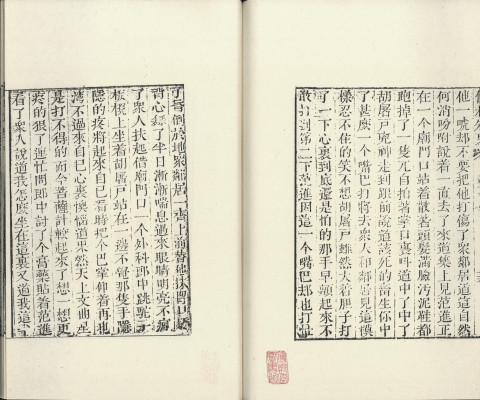 他一嚇却不要把他打傷了眾鄰居道這自然
何消吩咐說着一直去了來到集上見范進正
在一個廟門口站着散着頭髮滿臉污泥鞋都
跑掉了一隻兀自拍着掌口裏叫道中了中了
胡屠戶兇神走到跟前說道該死的畜生你中
了甚麼一個嘴巴打將去眾人和鄰居見這模
樣忍不住的笑不想胡屠戶雖然大着膽子打
了一下心裏到底還是怕的那手早顫起來不
敢打到第二下范進因這一個嘴巴却也打暈
了昏倒於地眾鄰居一齊上前替他抹胸口
背心舞了半日漸漸喘息過來眼睛明亮不瘋
了眾人扶起借廟門口一個外科郎中跳駝子
板櫈上坐着胡屠戶站在一邊不覺那隻手隱
隱的疼將起來自己看時把個巴掌仰着再也
灣不過來自己心裏懊惱道果然天上文曲星
是打不得的而今菩薩計較起來了想一想更
疼的狠了連忙問郎中討了個膏藥貼着范進
看了眾人說道我怎麼坐在這裏又道我這